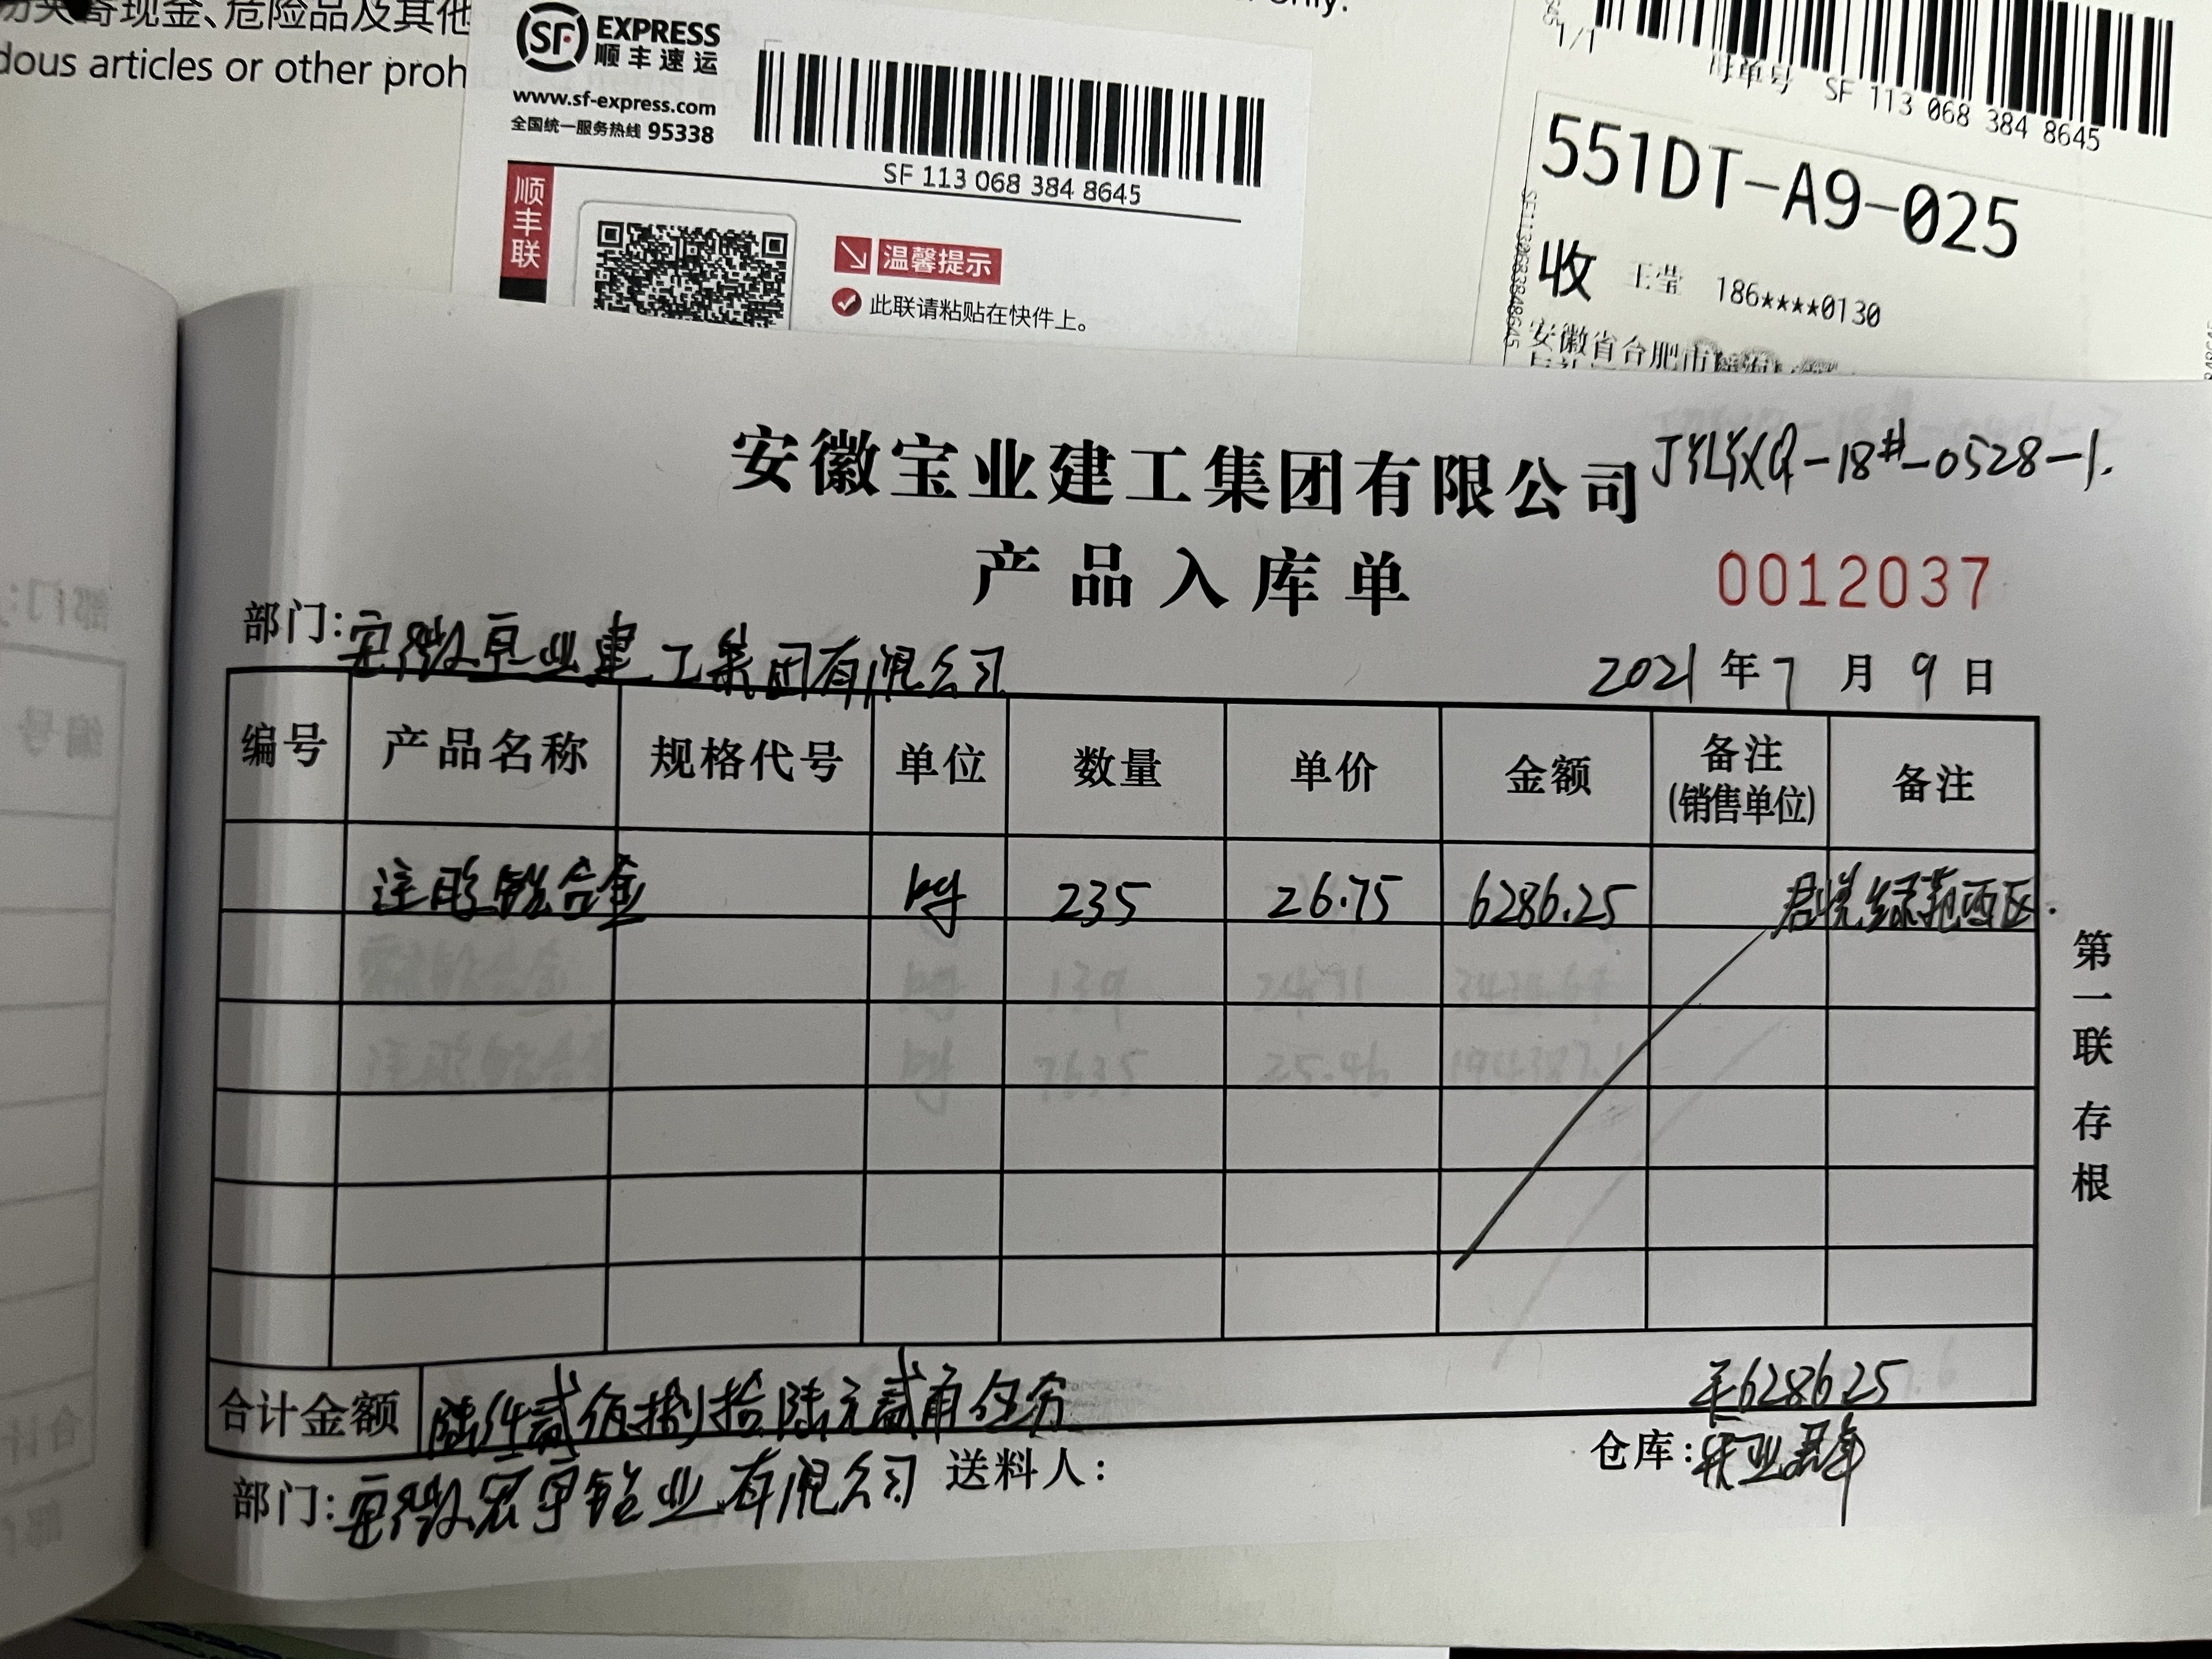 现金、危险品及其他
dous articles or other proh
SF EXPRESS
顺丰速运
www.sf-express.com
全国统一服务热线 95338
SF 113 068 384 8645
顺丰联
温馨提示
此联请粘贴在快件上。
1/1
母单号 SF 113 068 384 8645
551DT-A9-025
收 王莹 186****0130
安徽省合肥市
安徽宝业建工集团有限公司 JYLYXQ-18#-0528-1.
产品入库单 0012037
部门:安徽宝业建工集团有限公司 2021年7月9日
编号 产品名称 规格代号 单位 数量 单价 金额 备注(销售单位) 备注
注胶铝合金 kg 235 26.75 6286.25 君悦绿苑西区.
合计金额 陆仟贰佰捌拾陆元贰角伍分 ¥6286.25
部门:安徽宏宇铝业有限公司 送料人: 仓库:
第一联 存根